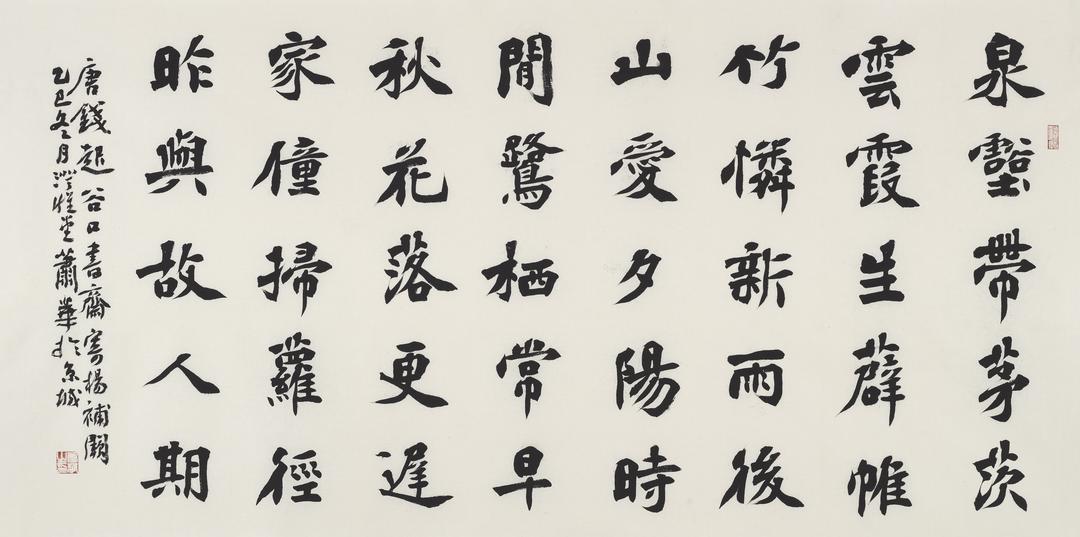 泉壑帶茅茨
雲霞生薜帷
竹憐新雨後
山愛夕陽時
閒鷺栖常早
秋花落更遲
家僮掃蘿徑
昨與故人期
唐錢起谷口書齋寄楊補闕
乙巳冬月澄堂蕭華於京城